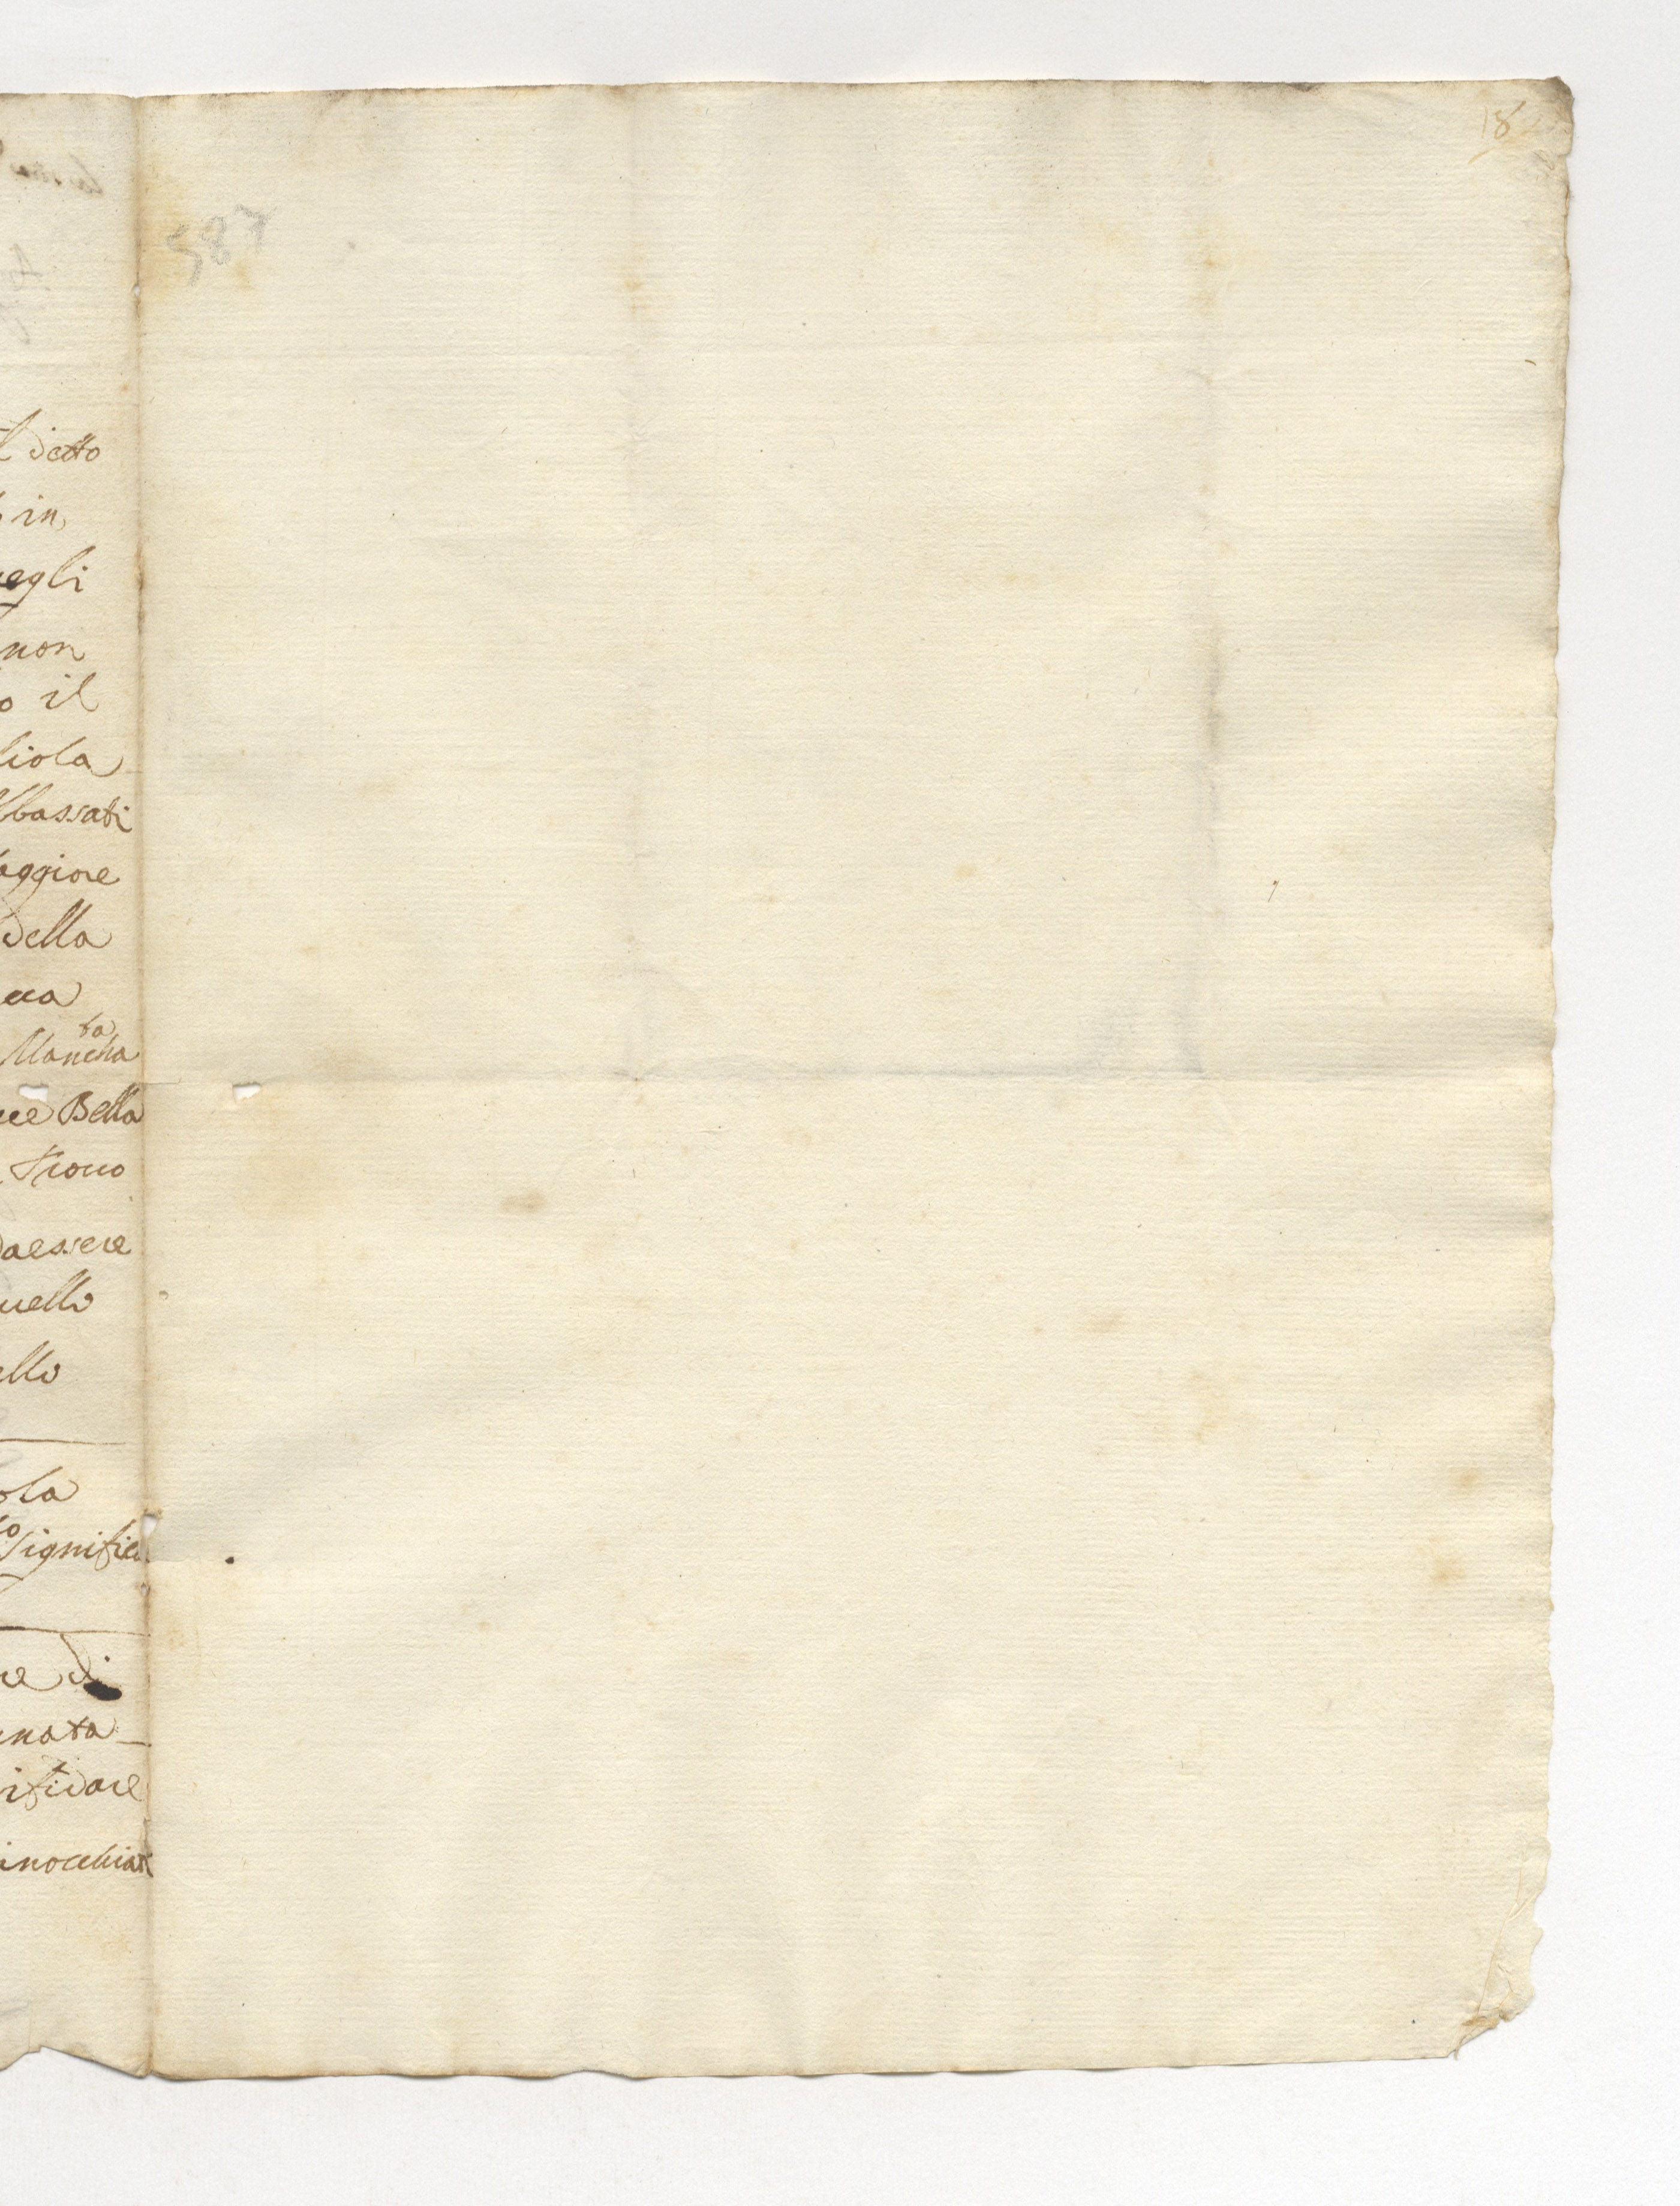 18
587
detto
in
egli
non
il
iola
bassati
aggiore
della
ta
Mancha
Bella
Trono
daessere
uello
ello
ola
significa
di
nata
ifidare
inocchiati